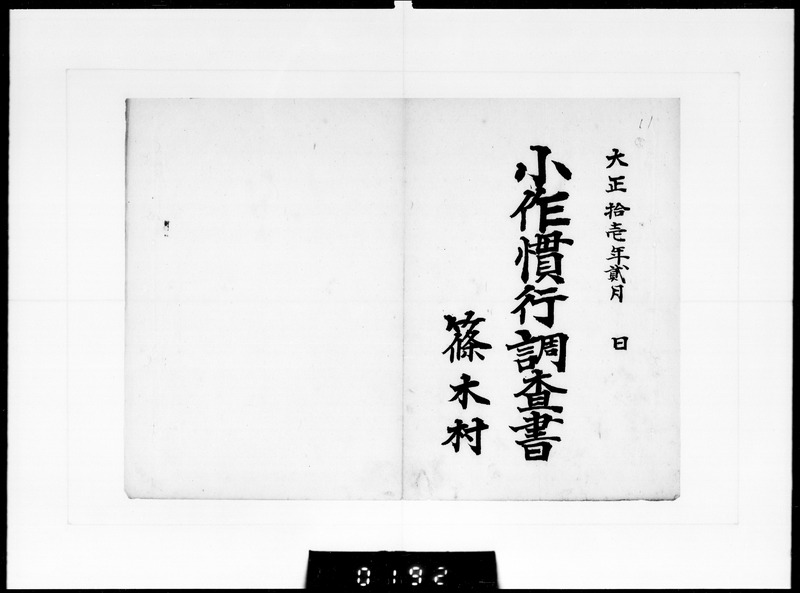 大正拾壱年貳月　日
小作慣行調査書
篠木村
11
0192